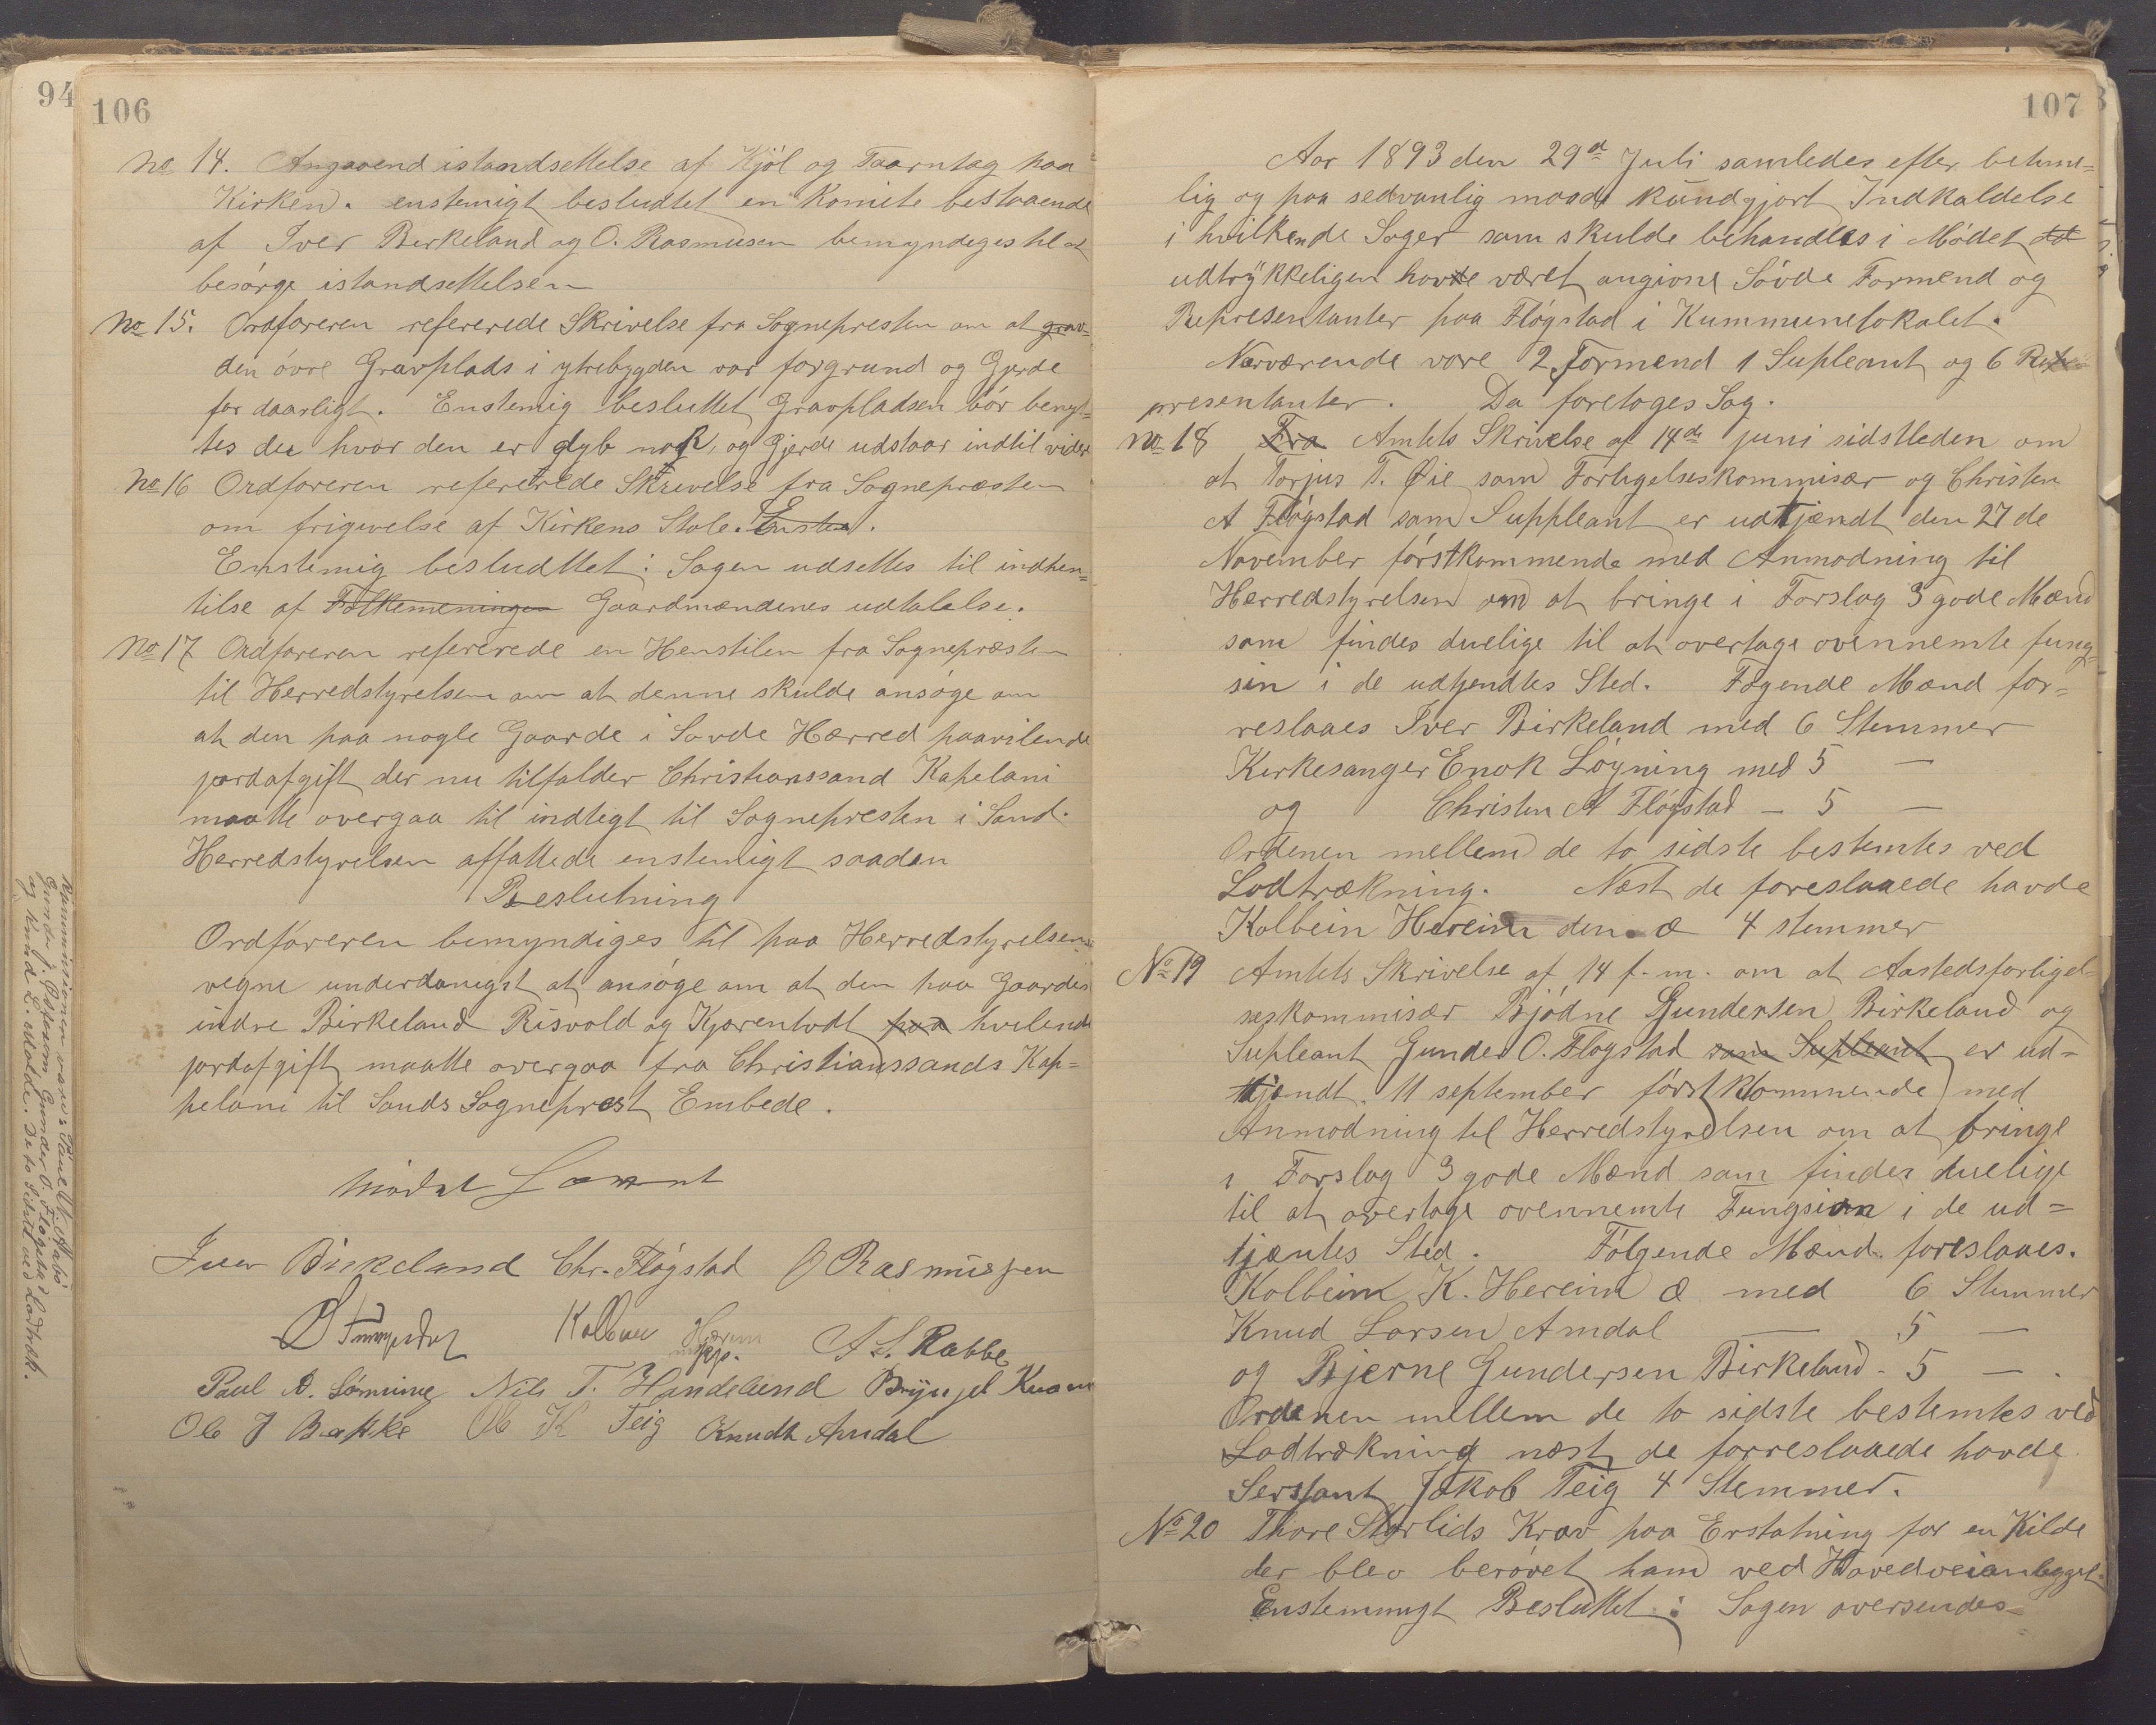 94
106
No 14. Angaaend istandsettelse af Kjöl og Taarntag paa
Kirken. enstemigt besludtet en Komite bestaaende
af Iver Birkeland og O. Rasmusen bemyndiges til at
besörge istandsettelsen
No 15. Ordföreren refererede Skrivelse fra Sognepresten om at grav-
den övre Gravplads i ytrebygden var forgrund og Gjerde
for daarligt. Enstemig besluttet Gravpladsen bör benyt=
tes der hvor den er dyb nok, og Gjerde udstaar indtil videre
No 16 Ordföreren refererede Skrivelse fra Sognepræsten
om frigivelse af Kirkens Stole. Enstem.
Enstemig besludttet: Sagen udsettes til indhen=
tilse af Folkemeningen Gaardmændenes udtalelse.
No 17 Ordföreren refererede en Henstilen fra Sognepræsten
til Herredstyrelsen om at denne skulde ansöge om
at den paa nogle Gaarde i Savde Hærred paavilende
jordafgift der nu tilfalder Christianssand Kapelani
maatte overgaa til indtegt til Sognepresten i Sand.
Herredstyrelsen affattede enstemigt saadan
Beslutning
Ordföreren bemyndiges til paa Herredstyrelsens
vegne underdanigst at ansöge om at den paa Gaardes
indre Birkeland Risvold og Kjærentvdt paa hvilende
jordafgift maatte overgaa fra Christianssands Kap=
pelani til Sands Sogneprest Embede.
Mödet
Iver Birkeland Chr. Flögstad O Rasmussen
Kolbein Hæreim A. L. Rabbe
Paul A. Nils T. Handeland Brynjel Kvam
Ole J Bakke Ole K Teig Knudt Amdal
Kommissionen være: Paul W. Aabö
Gunder J. Östesom Gunder O. Flögstad
og Knud L. Molde. De to Sidste ved Lodtræk.
107
Aar 1893 den 29d Juli samledes efter betime=
lig og paa sedvanlig maade kundgjort Indkaldelse
i hvilkende Sager som skulde behandles i Mödet at
udtrykkeligen havde været angione Sövde Formend og
Representanter paa Flögstad i Kummunelokalet.
Nærværende vare 2 Formend 1 Supleant og 6 Re
presentanter. Da foretoges Sag.
No 18 Fra Amtets Skrivelse af 14de juni sidstleden om
at Torjus T. Øie som Forligelseskommisær og Christen
A Flögstad som Suppleant er udtjændt den 27 de
November förstkommende med Anmodning til
Herredstyrelsen om at bringe i Forslag 3 gode Mænd
som findes duelige til at overtage ovennemte fung=
sin i de udtjendtes Sted. Fögende Mænd for=
reslaaes Iver Birkeland med 6 Stemmer
Kirkesanger Enok Löyning med 5 —
og Christen A Flögstad — 5 —
Ordenen mellem de to sidste bestemtes ved
Lodtrækning. Næst de foreslaaede havde
Kolbein Hereim den æ 4 stemmer
No 19 Amtets Skrivelse af 14 f. m. om at Aastedsforligel-
seskommisær Bjödne Gundersen Birkeland og
Supleant Gunder O. Flogstad som Supleant er ud-
tjændt 11 september först kommende med
Anmodning til Herredstyrelsen om at bringe
i Forslag 3 gode Mænd som findes duelige
til at overtage ovennemte Fungsion i de ud=
tjæntes Sted. Fölgende Mænd foreslaaes.
Kolbein K. Hereim æ med 6 Stemmer
Knud Larsen Amdal — 5 —
og Bjerne Gundersen Birkeland - 5 —
Ordenen mellem de to sidste bestemtes ved
Lodtrækning næst de forreslaaede havde
Sersjant Jakob Teig 4 Stemmer.
No 20 Thore Storlids Krav paa Erstatning for en Kilde
der blev berövet ham ved Hovedveianlegget
Enstemmigt Besluttet: Sagen oversendes